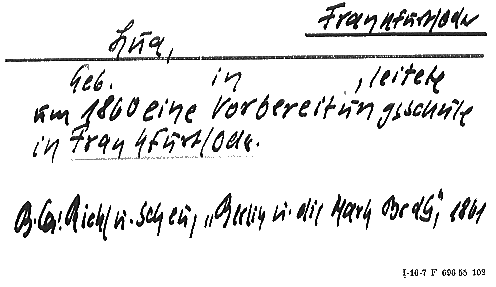 Frankfurt/Oder
Lua,
Geb. in , leitete
um 1860 eine Vorbereitungsschule
in Frankfurt/Oder.
Riehl u. Scheu, „Berlin u. die Mark Brdbg", 1861
I-16-7 F 696 55 102